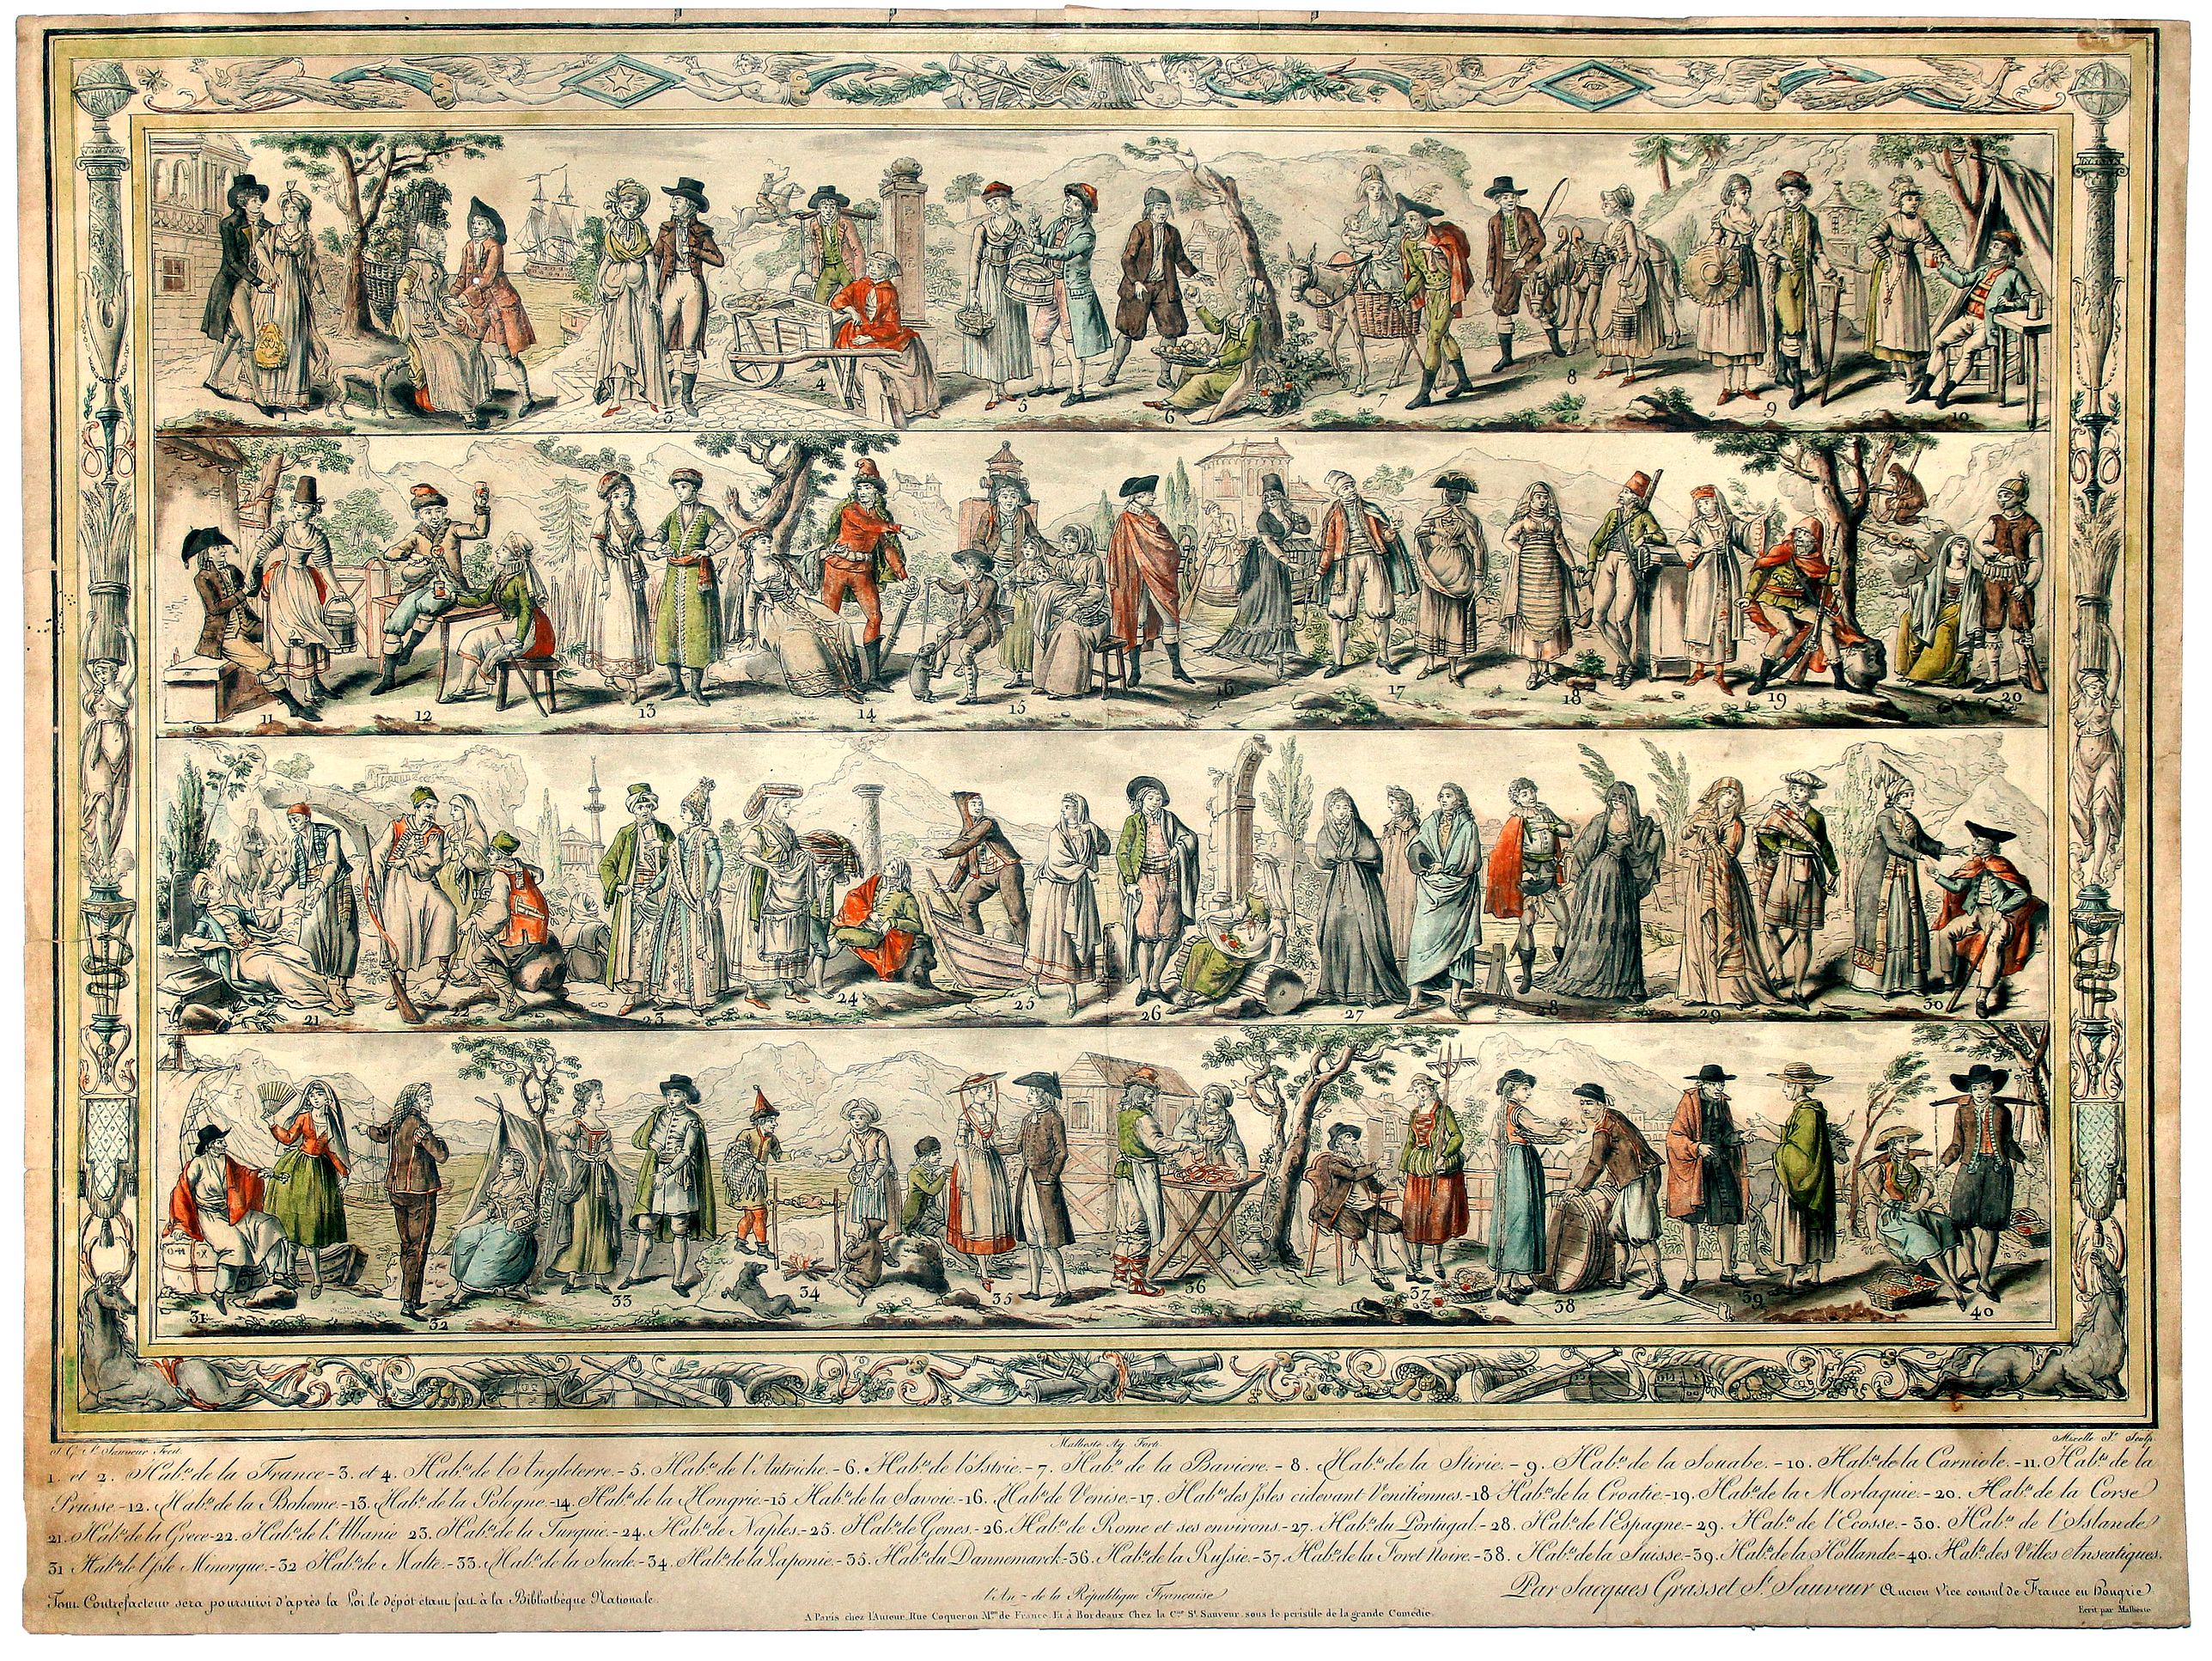 3
4
5
6
7
8
9
10
11
12
13
14
15
16
17
18
19
20
21
22
23
24
25
26
27
28
29
30
31
32
33
34
35
36
37
38
39
40
J. G. St. Sauveur Fecit.
Malbeste Aq. Forti.
Mixelle Jne. Sculp.
1. et 2. Habns. de la France - 3. et 4. Habns. de l'Angleterre. - 5. Habns. de l'Autriche. - 6. Habns. de l'Istrie. - 7. Habns. de la Baviere. - 8. Habns. de la Stirie. - 9. Habns. de la Souabe. - 10. Habns. de la Carniole. - 11. Habns. de la
Prusse. - 12. Habns. de la Boheme. - 13. Habns. de la Pologne. - 14. Habns. de la Hongrie. - 15 Habns. de la Savoie. - 16. Habns. de Venise. - 17. Habns. des Isles cidevant Venitiennes. - 18 Habns. de la Croatie. - 19. Habns. de la Morlaquie. - 20. Habns. de la Corse
21. Habns. de la Grece - 22. Habns. de l'Albanie 23. Habns. de la Turquie. - 24. Habns. de Naples. - 25. Habns. de Genes. - 26. Habns. de Rome et ses environs. - 27. Habns. du Portugal. - 28. Habns. de l'Espagne. - 29. Habns. de l'Ecosse. - 30. Habns. de l'Islande
31 Habns. de l'Isle Minorque. - 32 Habns. de Malte. - 33. Habns. de la Suede. - 34. Habns. de la Laponie. - 35. Habns. du Dannemarck - 36. Habns. de la Russie. - 37. Habns. de la Foret Noire. - 38. Habns. de la Suisse. - 39. Habns. de la Hollande - 40. Habns. des Villes Anseatiques.
Tout Contrefacteur sera poursuivi d'après la Loi, le dépôt étant fait à la Bibliothèque Nationale.
l'An - de la République Française
Par Jacques Grasset St. Sauveur Ancien Vice consul de France en Hongrie
A Paris chez l'Auteur, Rue Coqueron Mson. de France. Et à Bordeaux Chez la Cne. St. Sauveur. sous le peristile de la grande Comédie.
Ecrit par Malbeste